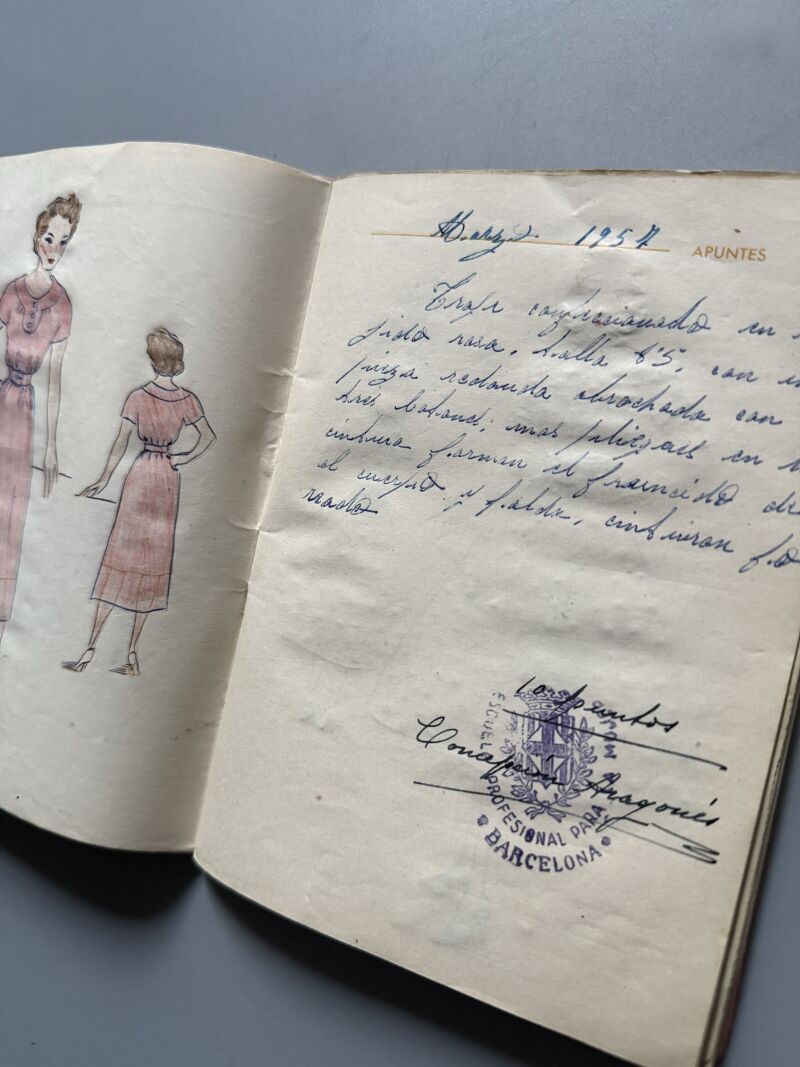 Marzo 1957
APUNTES
Traje confeccionado en
jido rosa, talla 85, con
pieza redonda abrochada con
tres botones; unos pliegues en
cintura forman el fruncido
al cuerpo y falda, cinturon fo
rrado
10 puntos
Concepción Aragonés
ESCUELA PROFESIONAL PARA LA MUJER
BARCELONA